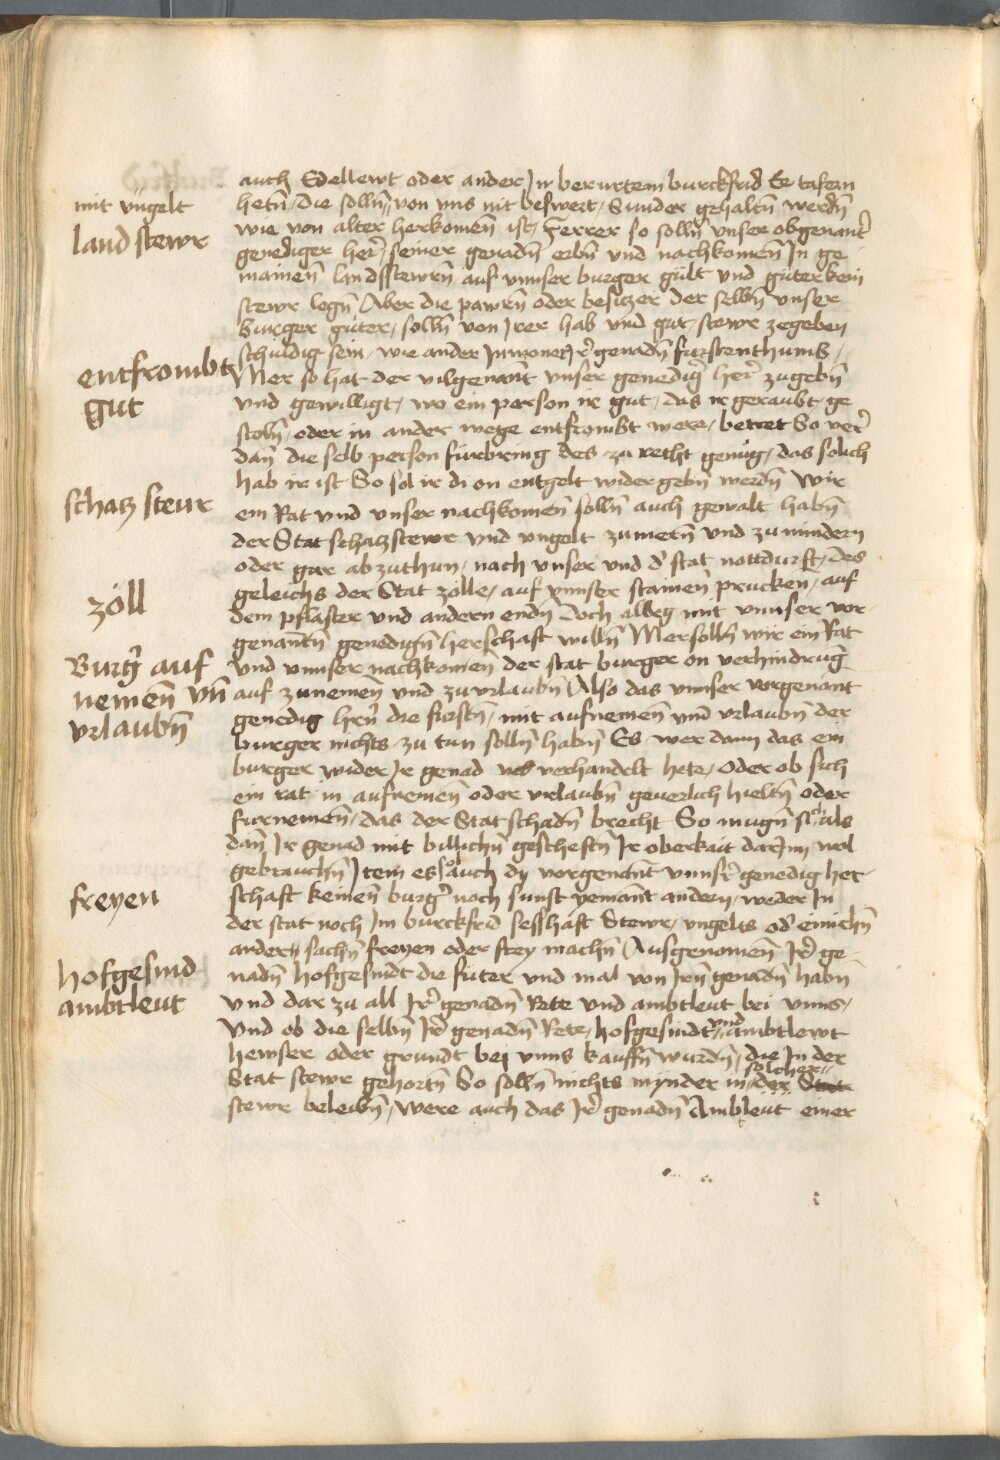 auch Edellewt oder ander Jn berurtem burckfrid Ee tafern
mit vngelt
hetn̄, die solln̄ von vns nit beswert, Sunder gehaltn̄ werdn̄
wie von alter herkomen̄ ist, Ferrer so solln̄ vnser obgenantr̄
land stewr
genediger her̄, seiner genadn̄ erbn̄ vnd nachkomen̄ Jn ge
mainen̄ landsstewrn̄ auf vnnser burger gült vnd güter kein
stewr legn̄ Aber die pawrn̄ oder besitzer der selbn̄ vnser
burger güter, solln̄ von Jrer hab vnd gut, stewr zegeben
schuldig sein, wie ander Jnwoner Jr̄ genadn̄ furstenthumbs,
entfrombt
gut
Mer so hat der vilgenant vnser genedigr̄ her̄ zugebn̄
vnd gewilligt, wo ein person ir gut, das ir geraubt, ge
stoln̄, oder in ander wege entfrombt were, betret So ver̄
dan̄ die selb person fürbring des zu recht genug, das solich
hab ir ist So sol ir di on entgelt wider gebn̄ werdn̄ Wir
schatz steur
ein Rat vnd vnser nachkomen̄ solln̄ auch gewalt habn̄
der Stat schatzstewr vnd vngelt zumern̄ vnd zu mindern
oder gar abzuthun, nach vnser vnd d' stat nottdurft, des
geleichs der Stat zölle, auf vnnser stainen̄ prucken, auf
zöll
dem pflaster vnd andern endn̄ Doch alweg mit vnnser vor
genantn̄ genedign̄ herschaft willn̄ Mer solln̄ wir ein Rat
Burgr̄ auf
nemen̄ vn̄
vrlaubn̄
vnd vnnser nachkomen̄ der stat burger on verhindruḡ
auf zunemen̄ vnd zuvrlaubn̄ Also das vnnser vorgenant
genedig hern̄ die fürstn̄, mit aufnemen̄ vnd vrlaubn̄ der
burger nichts zu tun solln̄ habn̄ Es wer dann das ein
burger wider Jr genad verhandelt hete, Oder ob sich
ein rat in aufnemen̄ oder vrlaubn̄ geuerlich hieltn̄ oder
furnemen̄, das der Stat schadn̄ brecht So mugn̄ sich als
dan̄ Jr genad mit billichn̄ gescheftn̄ Jr oberkait darJnn wol
gebrauchn̄ Jtem es sol auch dy vorgenant vnnsr̄ genedig her-
freyen
schaft keinen̄ burgr̄ noch sunst yemant andern, weder Jn
der stat noch Jm burckfrid sesshaft Stewr, vngelts od' einichn̄
andern sachn̄ freyen oder frey machn̄ Ausgenomen̄ Jr̄ ge-
hofgesind
ambtleut
nadn̄ hofgesindt die futer vnd mal von Jrn̄ genadn̄ habn̄
vnd dar zu all Jr̄ genadn̄ Rete vnd ambtleut bei vnns,
Vnd ob die selbn̄ Jr̄ genadn̄ Rete, hofgesindt, vnd ambtlewt
hewser oder grundt bej vnns kauffn̄ wurdn̄, die Jn der
Stat stewr gehortn̄ So solln̄ nichts mynder in solcher der Stat
stewr beleibn̄, Were auch das Jr̄ genadn̄ Ambleut einer